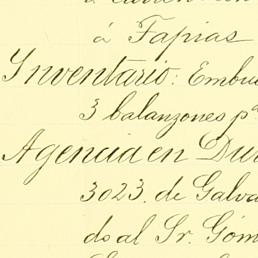 á Tapias
Inventario: Embu
3 balanzones pª
Agencia en Dur
3023. de Galva
do al Sr. Góm